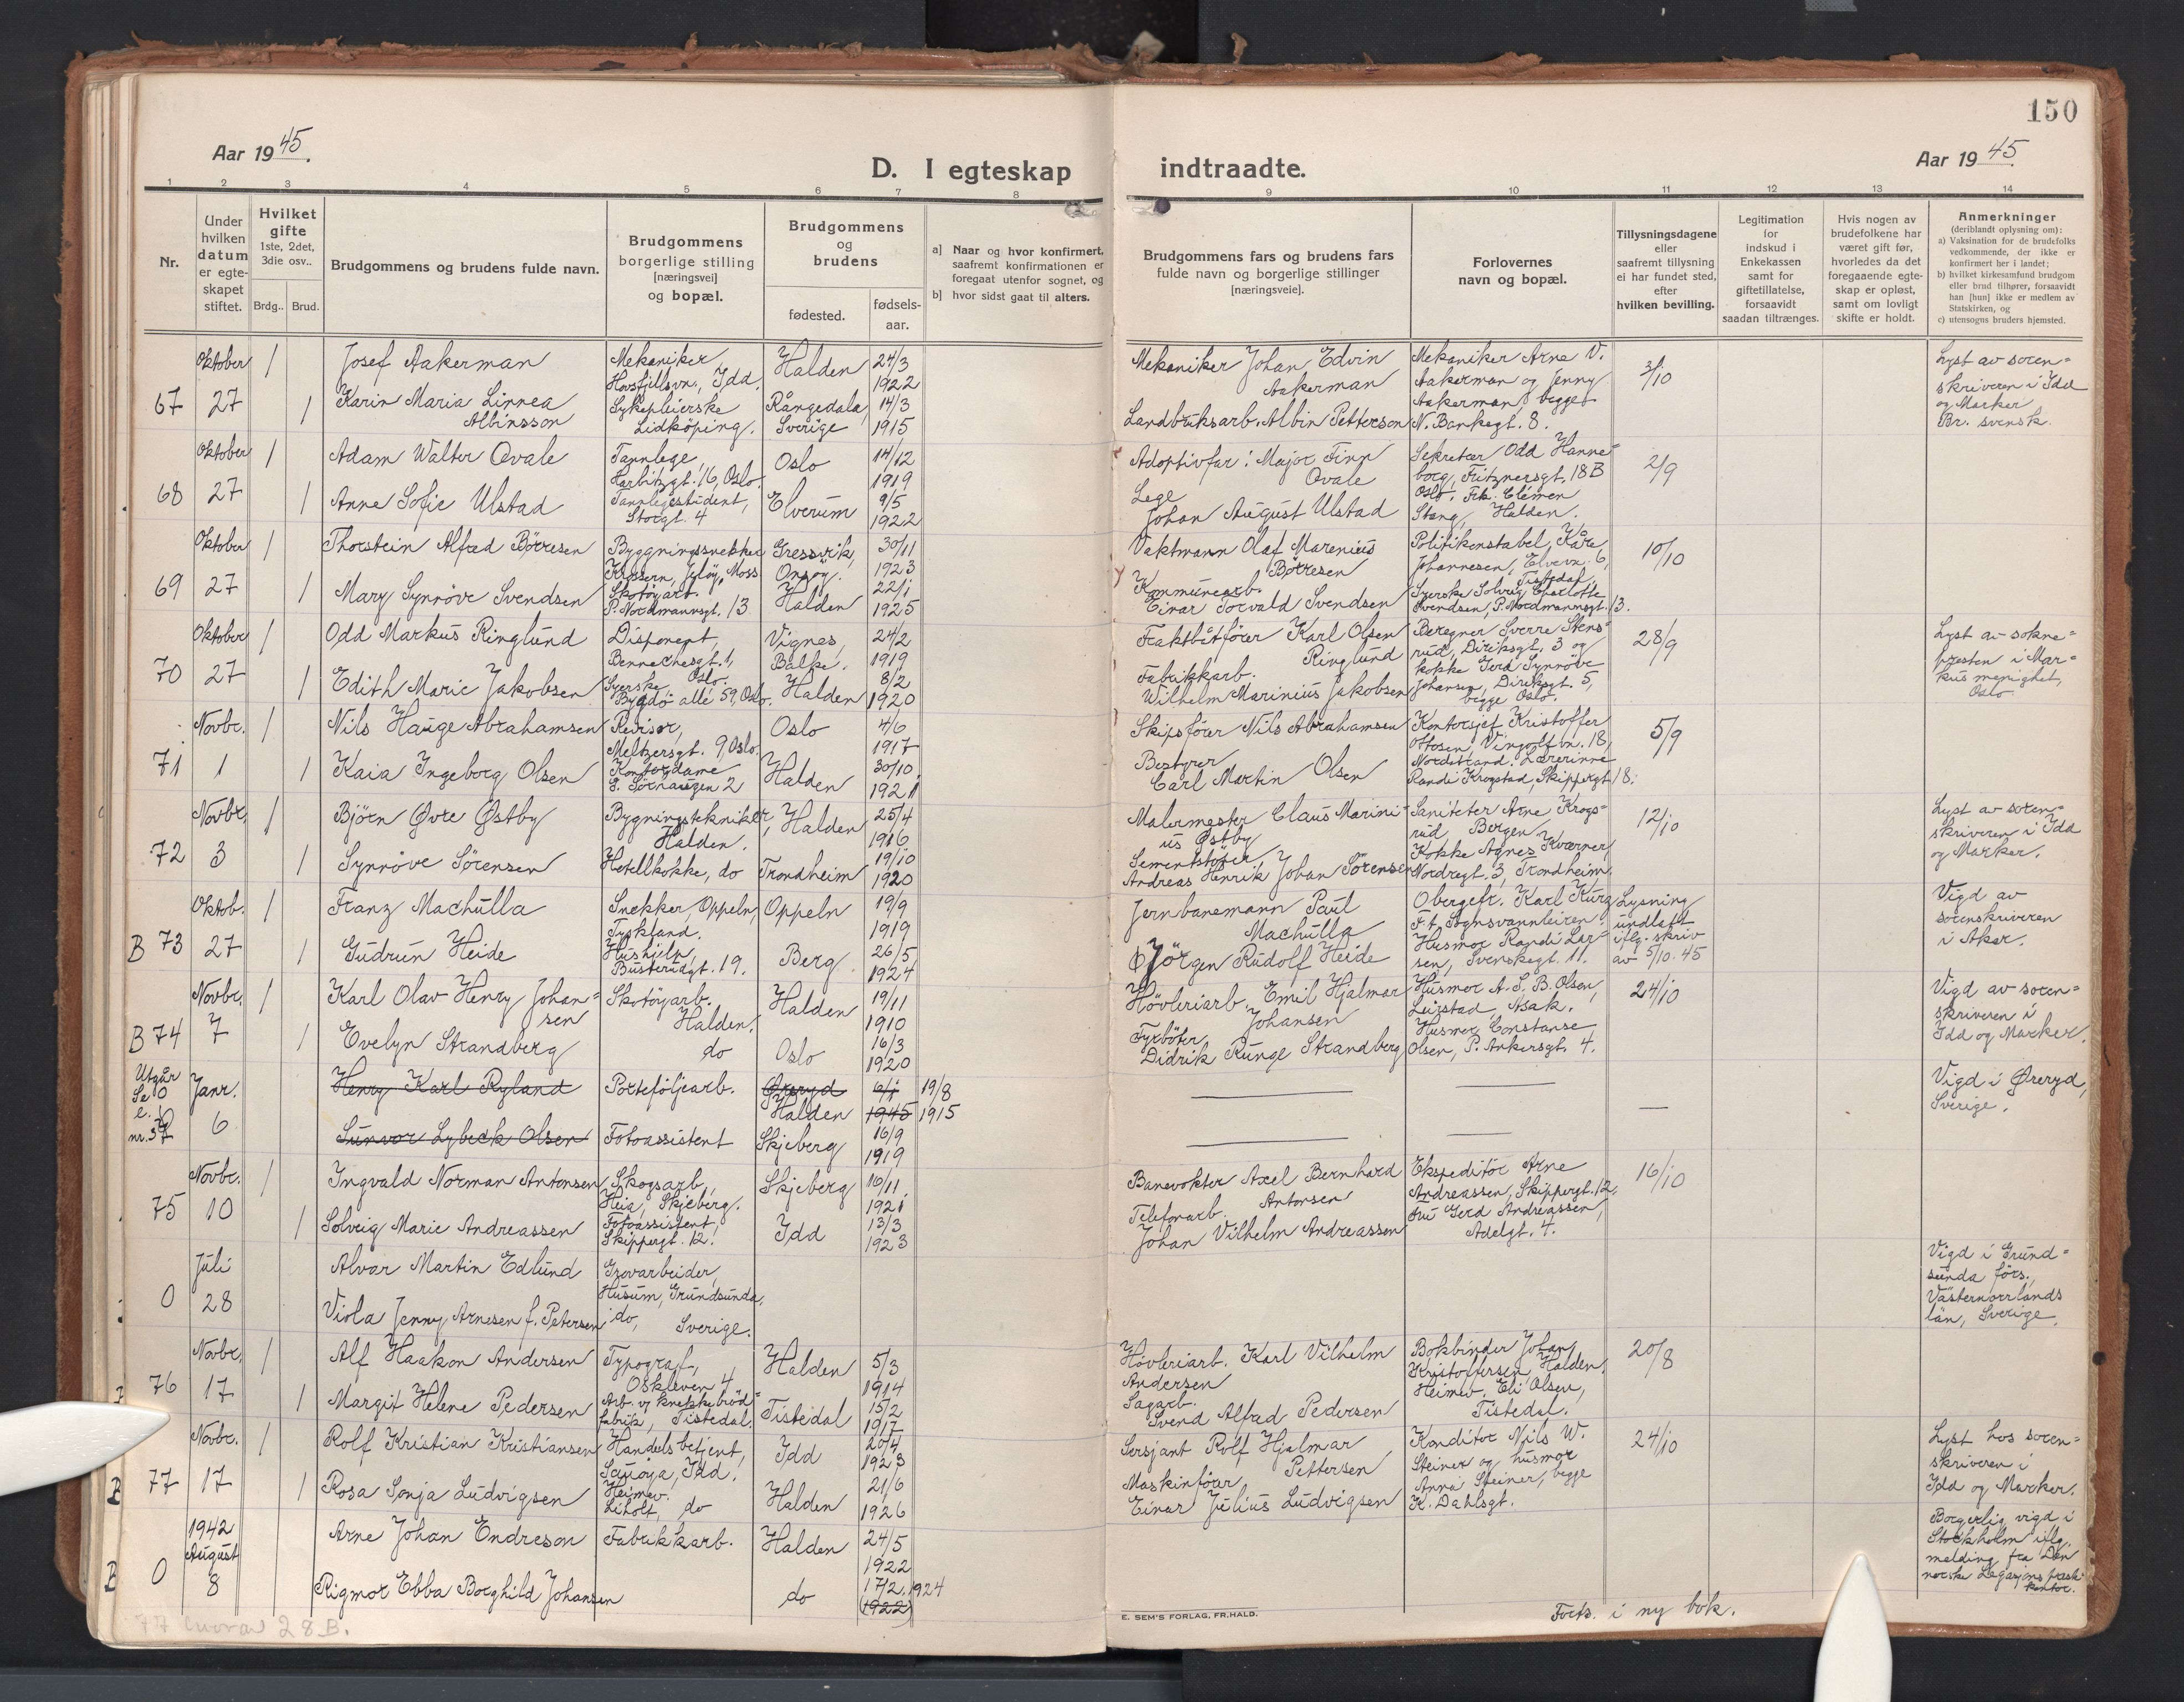 150
Aar 1945.
D. I egteskap indtraadte.
Aar 1945
1 2 3 4 5 6 7 8 9 10 11 12 13 14
Nr.
Under hvilken datum er egteskapet stiftet.
Hvilket gifte 1ste, 2det, 3die osv..
Brdg.. Brud.
Brudgommens og brudens fulde navn.
Brudgommens borgerlige stilling [næringsvei] og bopæl.
Brudgommens og brudens
fødested. fødsels-aar.
a] Naar og hvor konfirmert, saafremt konfirmationen er foregaat utenfor sognet, og
b] hvor sidst gaat til alters.
Brudgommens fars og brudens fars fulde navn og borgerlige stillinger [næringsveie].
Forlovernes navn og bopæl.
Tillysningsdagene eller saafremt tillysning ei har fundet sted, efter hvilken bevilling.
Legitimation for indskud i Enkekassen samt for giftetillatelse, forsaavidt saadan tiltrænges.
Hvis nogen av brudefolkene har været gift før, hvorledes da det foregaaende egteskap er opløst, samt om lovligt skifte er holdt.
Anmerkninger (deriblandt oplysning om):
a) Vaksination for de brudefolks vedkommende, der ikke er konfirmert her i landet;
b) hvilket kirkesamfund brudgom eller brud tilhører, forsaavidt han [hun] ikke er medlem av Statskirken, og
c) utensogns bruders hjemsted.
67 Oktober 27 1 Josef Aakerman Mekaniker, Hovsfjellsvn., Idd. Halden 24/3 1922 Mekaniker Johan Edvin Aakerman Mekaniker Arne V. Aakerman og Jenny Aakerman, begge N. Bankegt. 8. 3/10 Lyst av soren=skriveren i Idd og Marker. Br. svensk.
1 Karin Maria Linnea Albinsson Sykepleierske Lidköping. Rångedala, Sverige 14/3 1915 Landbruksarb. Albin Petterson
68 Oktober 27 1 Adam Walter Qvale Tannlege, Harbitzgt. 16, Oslo. Oslo 14/12 1919 Adoptivfar: Major Finn Qvale Sekretær Odd Hanne=borg, Fritznersgt. 18B Oslo. Frk. Clémen Stang, Halden. 2/9
1 Anne Sofie Ulstad Tannlegestudent, Storgt. 4 Elverum 9/5 1922 Lege Johan August Ulstad
69 Oktober 27 1 Thorstein Alfred Börresen Byggningssnekker Krossern, Jeløy, Moss Gressvik, Onsøy. 30/11 1923 Vaktmann Olaf Marenius Börresen Politikonstabel Kåre Johannesen, Elvevn. 6, Tistedal. Syerske Solveig Charlotte Svendsen, P. Nordmannsgt. 13. 10/10
1 Mary Synnöve Svendsen Skotøyarb. P. Nordmannsgt. 13 Halden 22/1 1925 Kommunearb. Einar Torvald Svendsen
70 Oktober 27 1 Odd Markus Ringlund Disponent, Bennechesgt. 1, Oslo. Vignes, Balke. 24/2 1919 Fraktbåtförer Karl Olsen Ringlund Beregner Sverre Stens=rud, Diriksgt. 3 og kokke Gerd Synnöve Johansen, Diriksgt. 5, begge Oslo 28/9 Lyst av sokne=presten i Mar=kus menighet, Oslo
1 Edith Marie Jakobsen Syerske Bygdö allé 59, Oslo. Halden 8/2 1920 Fabrikkarb. Wilhelm Marinius Jakobsen
71 Novbr. 1 1 Nils Hauge Abrahamsen Revisor, Meltzersgt. 9, Oslo. Oslo 4/6 1917 Skipsförer Nils Abrahamsen Kontorsjef Kristoffer Ottosen, Vingolfvn. 18, Nordstrand. Lærerinne Randi Krogstad, Skippergt. 18. 5/9
1 Kaia Ingeborg Olsen Kontordame G. Sörhaugen 2 Halden 30/10 1921 Bestyrer Carl Martin Olsen
72 Novbr. 3 1 Bjørn Øvre Østby Bygningstekniker, Halden. Halden 25/4 1916 Malermester Claus Marini=us Østby Saniteter Arne Krogs=rud, Bergen. Kokke Agnes Kværner Nordregt. 3, Trondheim. 12/10 Lyst av soren=skriveren i Idd og Marker.
1 Synnöve Sörensen Hotellkokke, do Trondheim 19/10 1920 Sementstöper Andreas Henrik Johan Sörensen
B 73 Oktob. 27 1 Franz Machulla Snekker, Oppeln, Tyskland. Oppeln 19/9 1919 Jernbanemann Paul Machulla Obergefr. Karl Kurz F.t. Sognsvannleiren Husmor Randi Lar=sen, Svenskegt. 11. Lysning undlatt iflg. skriv av 5/10-45 Vigd av sorenskriveren i Aker.
1 Gudrun Heide Hushjelp, Busterudgt. 19. Berg 26/5 1924 Jörgen Rudolf Heide
B 74 Novbr. 7 1 Karl Olav Henry Johan=sen Skotöyarb. Halden. Halden 19/11 1910 Hövleriarb. Emil Hjalmar Johansen Husmor A. S. B. Olsen, Leirstad, Asak. Husmor Constanse Olsen, P. Ankersgt. 4. 24/10 Vigd av soren=skriveren i Idd og Marker.
1 Evelyn Strandberg do Oslo 16/3 1920 Fyrböter Didrik Runge Strandberg
Utgår Se nr. 37 0 Janr. 6 Henry Karl Ryland Porteföljearb. Øreryd Halden 6/1 1945 19/8 1915 Vigd i Øreryd, Sverige.
Sunvor Lybeck Olsen Fotoassistent Skjeberg 16/9 1919
75 Novbr. 10 1 Ingvald Norman Antonsen Skogsarb., Heia, Skjeberg. Skjeberg 16/11 1921 Banevokter Axel Bernhard Antonsen Ekspeditör Arne Andreassen, Skippergt. 12, fru Gerd Andreassen, Adelgt. 4. 16/10
1 Solveig Marie Andreassen Fotoassistent, Skippergt. 12. Idd 13/3 1923 Telefonarb. Johan Vilhelm Andreassen
0 Juli 28 Alvar Martin Edlund Grovarbeider, Husum, Grundsunda, Sverige. Vigd i Grund=sunda förs., Västernorrlands län, Sverige.
Viola Jenny Arnesen f. Petersen do,
76 Novbr. 17 1 Alf Haakon Andersen Typograf, Oskleven 4 Halden 5/3 1914 Hövleriarb. Karl Vilhelm Andersen Bokbinder Johan Kristoffersen, Halden. Heimev. Eli Olsen, Tistedal. 20/8
1 Margit Helene Pedersen Arb. v/ knekkebröd=fabrik, Tistedal. Tistedal 15/2 1917 Sagarb. Svend Alfred Pedersen
B 77 Novbr. 17 1 Rolf Kristian Kristiansen Handelsbetjent, Sauöya, Idd. Idd 20/4 1923 Sersjant Rolf Hjalmar Pettersen Konditor Nils W. Steiner og husmor Anna Steiner, begge K. Dahlsgt. 24/10 Lyst hos soren=skriveren i Idd og Marker.
1 Rosa Sonja Ludvigsen Heimev. Liholt, do Halden 21/6 1926 Maskinförer Einar Julius Ludvigsen
B 0 1942 August 8 Arne Johan Endreson Fabrikkarb. Halden 24/5 1922 Borgerlig vigd i Stockholm iflg. melding fra Den norske Legasjons prestekontor.
Rigmor Ebba Borghild Johansen do 17/2 1924 1922
E. SEM'S FORLAG, FR.HALD.
Forts. i ny bok.
77 hvorav 28 B.